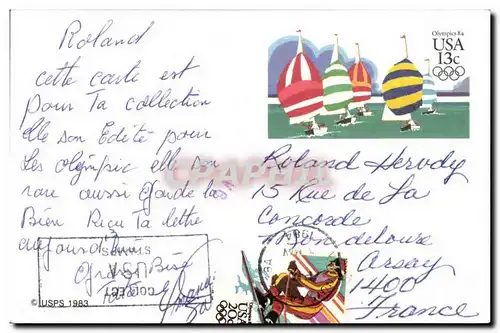 Roland
cette carte est
pour Ta collection
elle son Edité pour
Les olympic elle son
rare aussi garde las
Bien Reçu Ta lettre
aujourd'hui
Gros Bise
© USPS 1983
Olympics 84
USA
13c
Roland Hervdy
15 Rue de La
Concorde
Orsay
1400
France
USA
20c
CPAPHIL